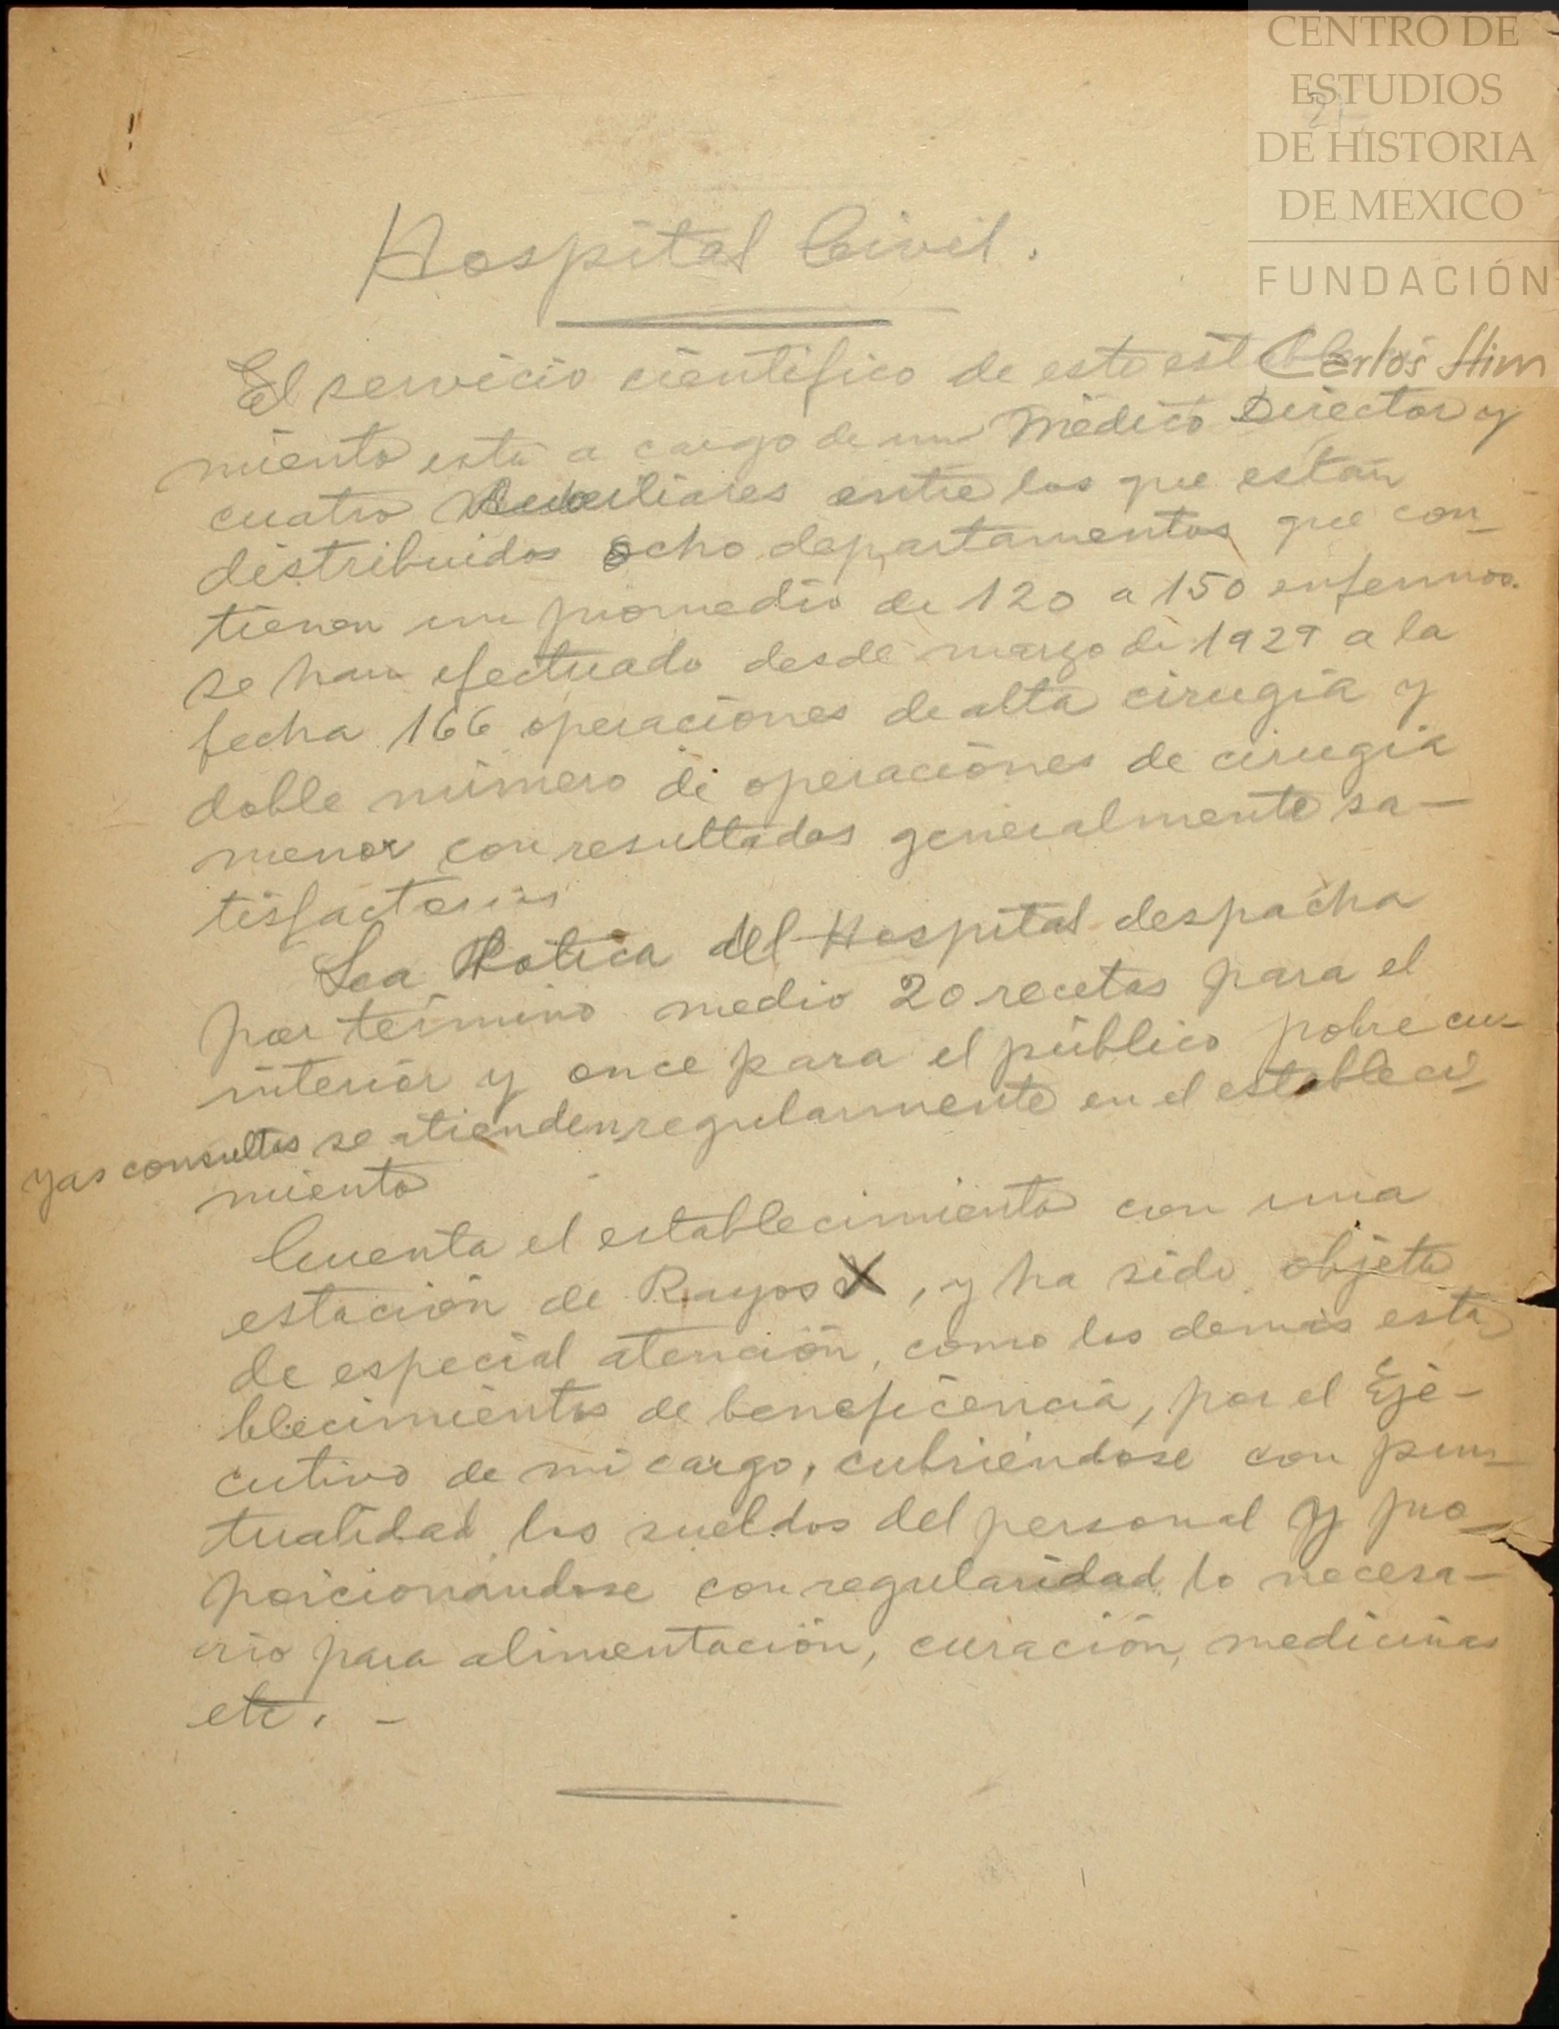 CENTRO DE
ESTUDIOS
DE HISTORIA
DE MEXICO
FUNDACIÓN
Carlos Slim
Hospital Civil.
El servicio cientifico de este estableci
miento esta a cargo de un Médico Director y
cuatro Auxiliares entre los que estan
distribuidos ocho departamentos que con-
tienen un promedio de 120 a 150 enfermos.
se han efectuado desde marzo de 1929 a la
fecha 166 operaciones de alta cirugia y
doble número de operaciones de cirugia
menor con resultados generalmente sa-
tisfactorios
La Botica del Hospital despacha
por termino medio 20 recetas para el
interior y once para el público pobre cu-
yas consultas se atienden regularmente en el estableci-
miento
Cuenta el establecimiento con una
estación de Rayos X, y ha sido objeto
de especial atención, como los demás esta
blecimientos de beneficencia, por el Eje-
cutivo de mi cargo, cubriéndose con pun-
tualidad los sueldos del personal y pro-
porcionándose con regularidad lo necesa-
rio para alimentación, curación, medicinas
etc. -